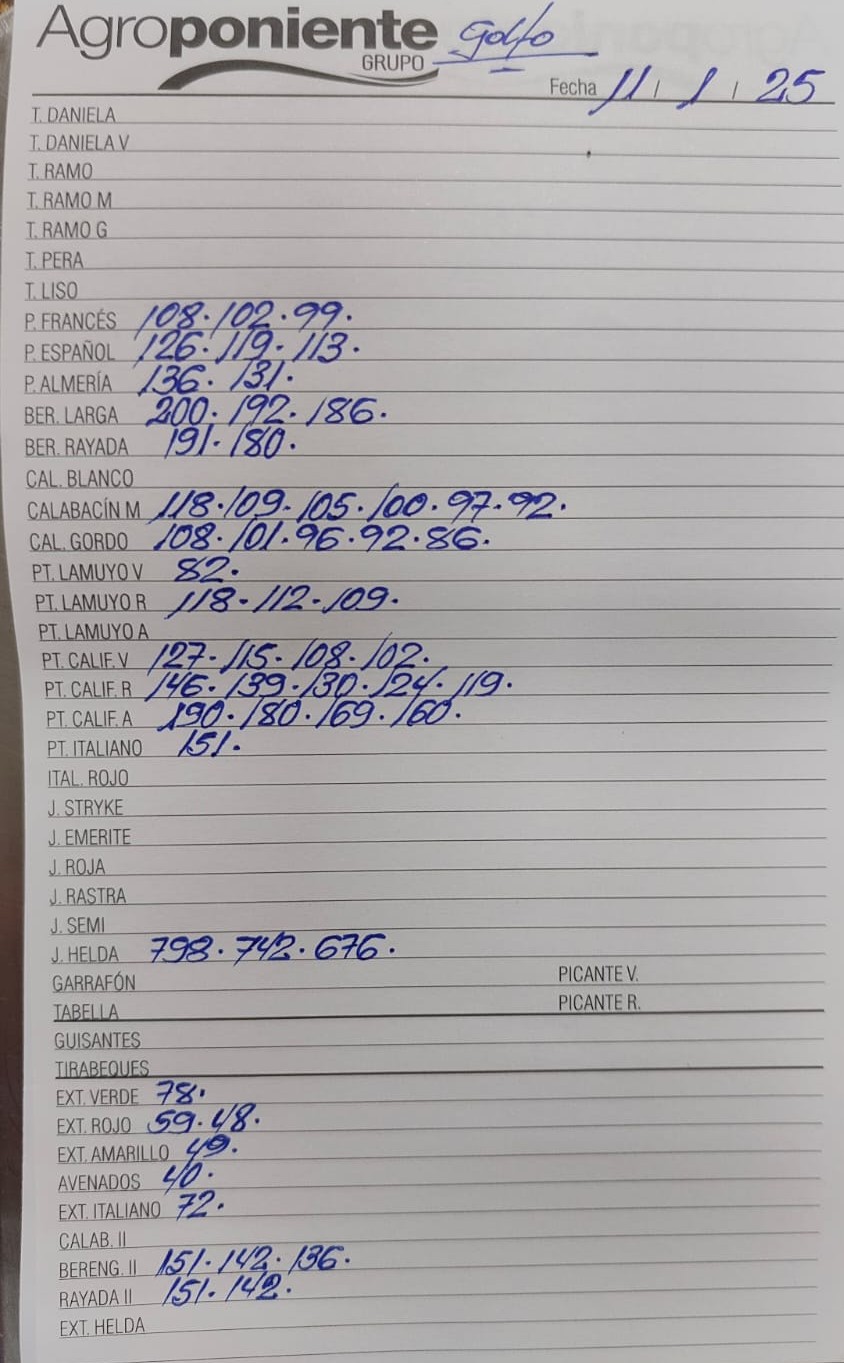 Agroponiente Golfo
GRUPO
Fecha 11 / 1 / 25
T. DANIELA
T. DANIELA V
T. RAMO
T. RAMO M
T. RAMO G
T. PERA
T. LISO
P. FRANCÉS 108. 102. 99.
P. ESPAÑOL 126. 119. 113.
P. ALMERÍA 136. 131.
BER. LARGA 200. 192. 186.
BER. RAYADA 191. 180.
CAL. BLANCO
CALABACÍN M 118. 109. 105. 100. 97. 92.
CAL. GORDO 108. 101. 96. 92. 86.
PT. LAMUYO V 82.
PT. LAMUYO R 118. 112. 109.
PT. LAMUYO A
PT. CALIF. V 127. 115. 108. 102.
PT. CALIF. R 146. 139. 130. 124. 119.
PT. CALIF. A 190. 180. 169. 160.
PT. ITALIANO 151.
ITAL. ROJO
J. STRYKE
J. EMERITE
J. ROJA
J. RASTRA
J. SEMI
J. HELDA 798. 742. 676.
GARRAFÓN PICANTE V.
TABELLA PICANTE R.
GUISANTES
TIRABEQUES
EXT. VERDE 78.
EXT. ROJO 59. 48.
EXT. AMARILLO 49.
AVENADOS 40.
EXT. ITALIANO 72.
CALAB. II
BERENG. II 151. 142. 136.
RAYADA II 151. 142.
EXT. HELDA